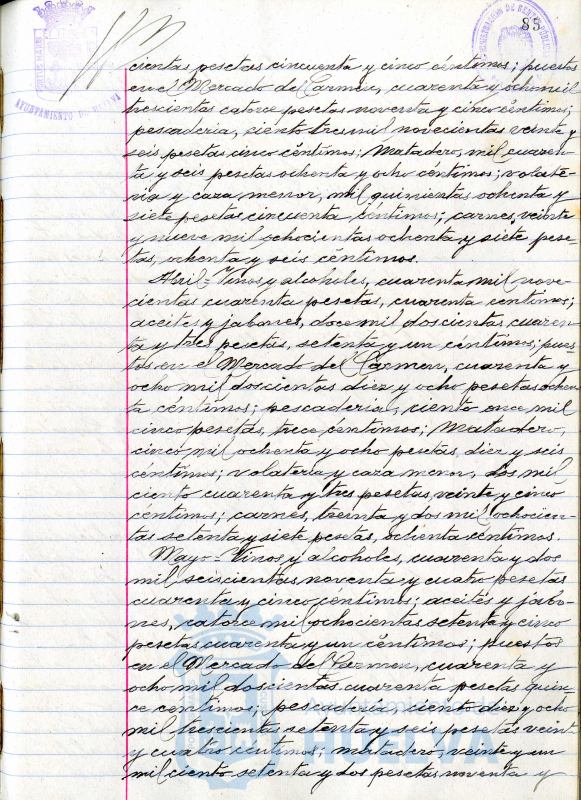 85
AYUNTAMIENTO DE HUELVA
cientas pesetas cincuenta y cinco céntimos; puestos
en el Mercado del Carmen, cuarenta y ocho mil
trescientas catorce pesetas noventa y cinco céntimos;
pescadería, ciento tres mil novecientas veinte y
seis pesetas cinco céntimos; Matadero, mil cuaren-
ta y seis pesetas ochenta y ocho céntimos; volate-
ria y caza menor, mil quinientas ochenta y
siete pesetas cincuenta céntimos; carnes, veinte
y nueve mil ochocientas ochenta y siete pese-
tas, ochenta y seis céntimos.
Abril- Vinos y alcoholes, cuarenta mil nove-
cientas cuarenta pesetas, cuarenta céntimos;
aceites y jabones, doce mil doscientas cuaren-
ta y tres pesetas, setenta y un céntimos; pues-
tos en el Mercado del Carmen, cuarenta y
ocho mil doscientas diez y ocho pesetas ochen-
ta céntimos; pescadería, ciento once mil
cinco pesetas, trece céntimos; Matadero,
cinco mil ochenta y ocho pesetas, diez y seis
céntimos; volateria y caza menor, dos mil
ciento cuarenta y tres pesetas, veinte y cinco
céntimos; carnes, treinta y dos mil ochocien-
tas setenta y siete pesetas, ochenta céntimos.
Mayo- Vinos y alcoholes, cuarenta y dos
mil seiscientas noventa y cuatro pesetas
cuarenta y cinco céntimos; aceites y jabo-
nes, catorce mil ochocientas setenta y cinco
pesetas cuarenta y un céntimos; puestos
en el Mercado del Carmen, cuarenta y
ocho mil doscientas cuarenta pesetas quin-
ce céntimos; pescadería, ciento diez y ocho
mil trescientas setenta y seis pesetas veint
y cuatro céntimos; matadero, veinte y un
mil ciento setenta y dos pesetas noventa y